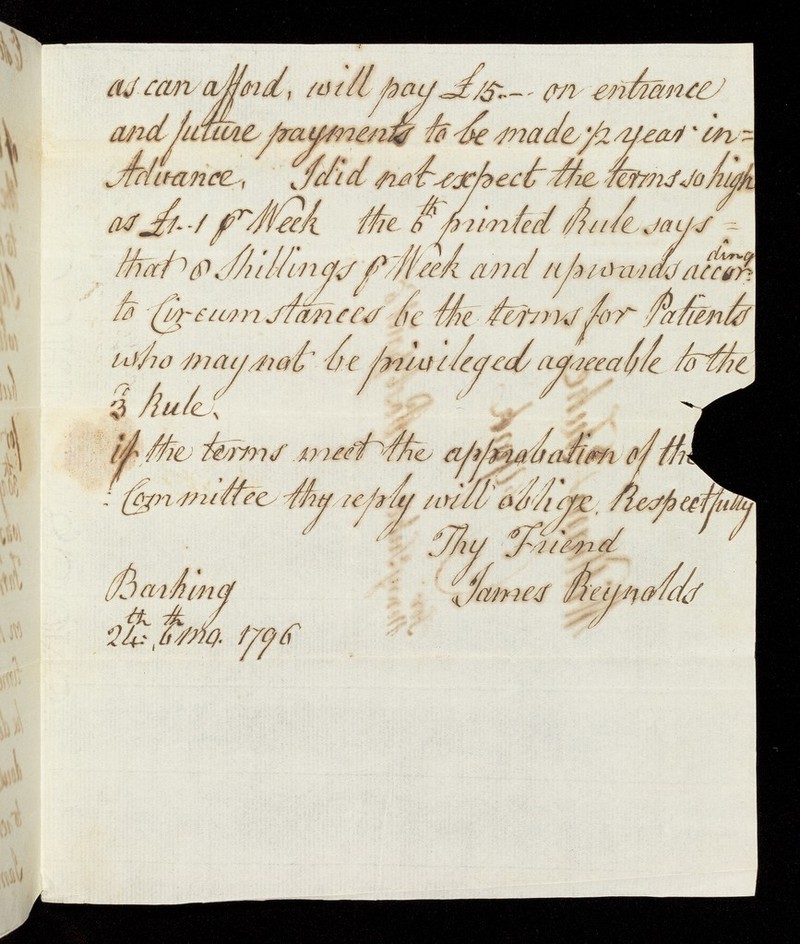 as can afford, will pay £15.-- on entrance
and future payments to be made ½ year in=
Advance. I did not expect the terms so high
as £1..1 ⅌ Week the 6th printed Rule says =
that 8 Shillings ⅌ Week and upwards according
to Circumstances be the terms for Patients
who may not be privileged agreeable to the
3 Rule.
if the terms meet the approbation of the
Committee thy reply will oblige. Respectfully
Thy Friend
Barking James Reynolds
24th, 6th mo. 1796